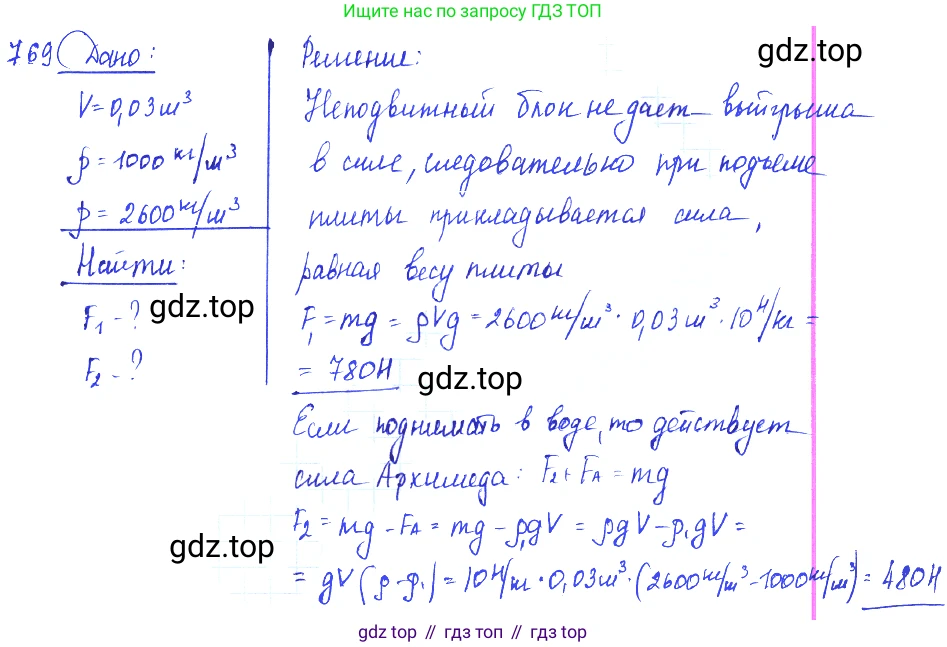 Ищите нас по запросу ГДЗ ТОП
769 Дано:
V = 0,03 м³
ρ = 1000 кг/м³
ρ = 2600 кг/м³
Найти:
F₁ - ?
F₂ - ?
Решение:
Неподвижный блок не дает выигрыша
в силе, следовательно при подъеме
плиты прикладывается сила,
равная весу плиты
F₁ = mg = ρVg = 2600 кг/м³ · 0,03 м³ · 10 Н/кг =
= 780 Н
Если поднимать в воде, то действует
сила Архимеда: F₂ + F_A = mg
F₂ = mg - F_A = mg - ρ₁gV = ρgV - ρ₁gV =
= gV (ρ - ρ₁) = 10 Н/кг · 0,03 м³ · (2600 кг/м³ - 1000 кг/м³) = 480 Н
gdz.top
gdz.top
gdz.top
gdz.top
gdz top // гдз топ // гдз top